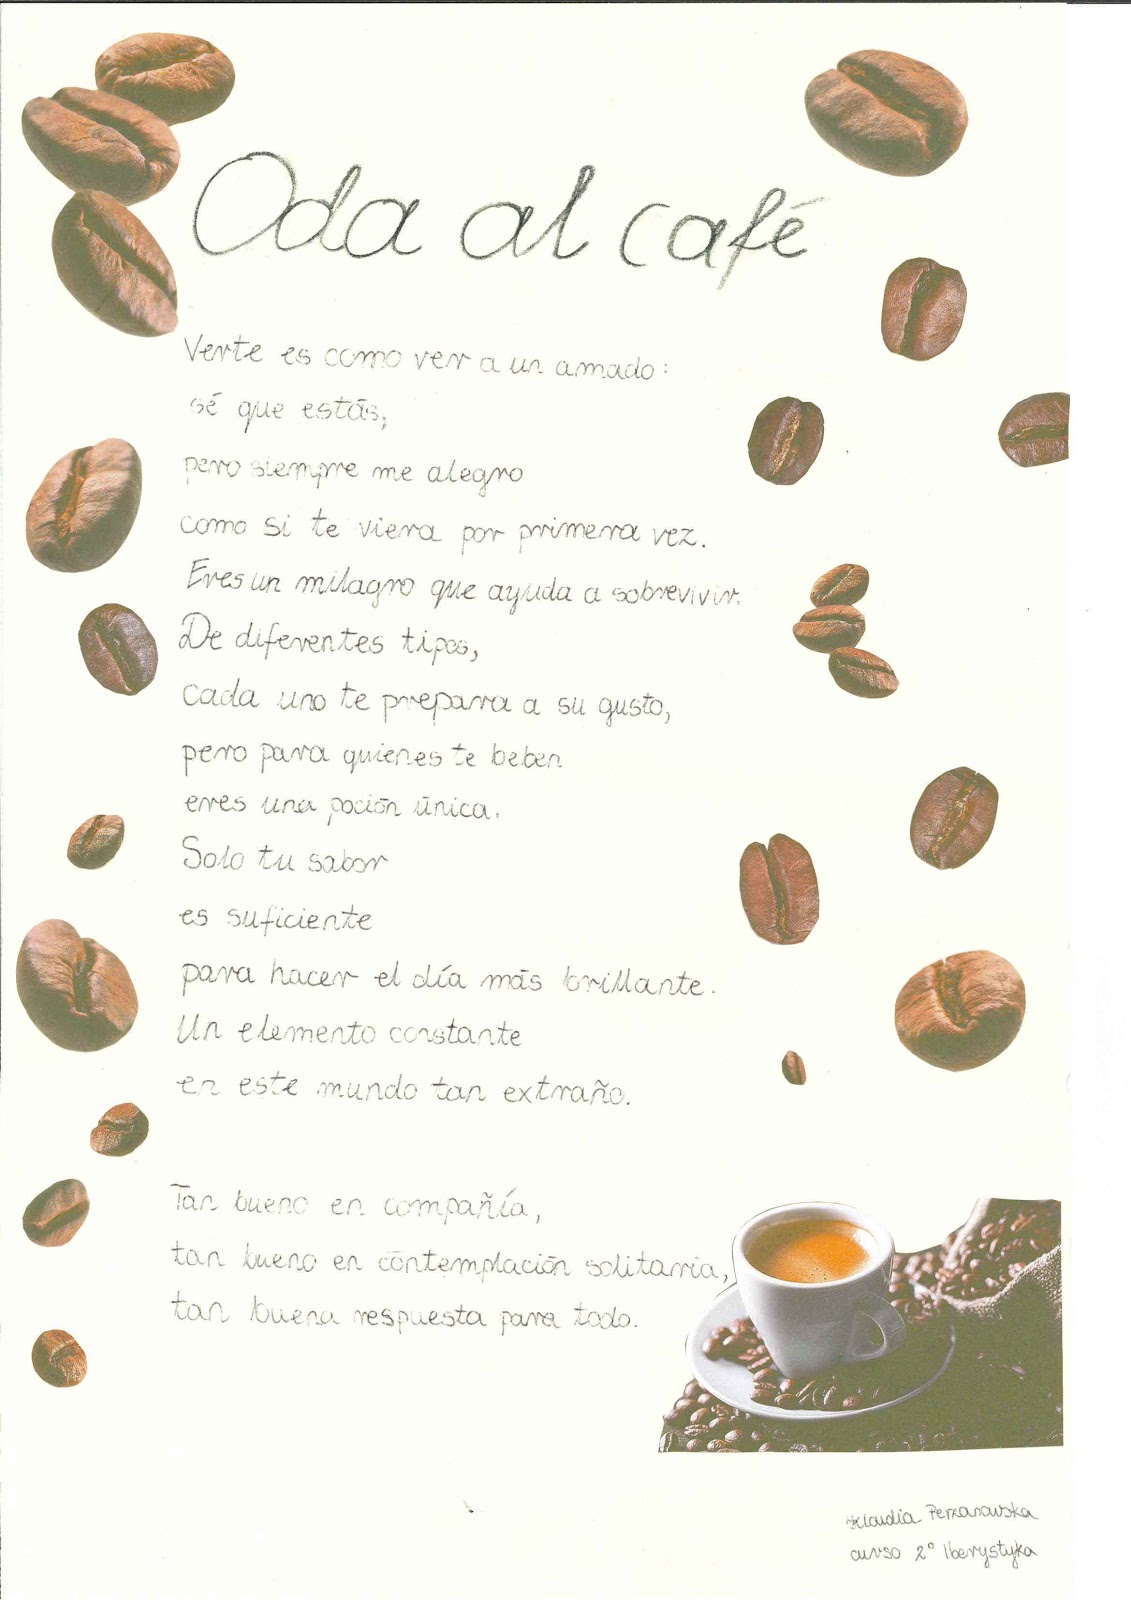 Oda al café
Verte es como ver a un amado:
sé que estás,
pero siempre me alegro
como si te viera por primera vez.
Eres un milagro que ayuda a sobrevivir.
De diferentes tipos,
cada uno te prepara a su gusto,
pero para quienes te beben
eres una poción única.
Solo tu sabor
es suficiente
para hacer el día más brillante.
Un elemento constante
en este mundo tan extraño.
Tan bueno en compañía,
tan bueno en contemplación solitaria,
tan buena respuesta para todo.
Klaudia Perzanowska
curso 2° Iberystyka